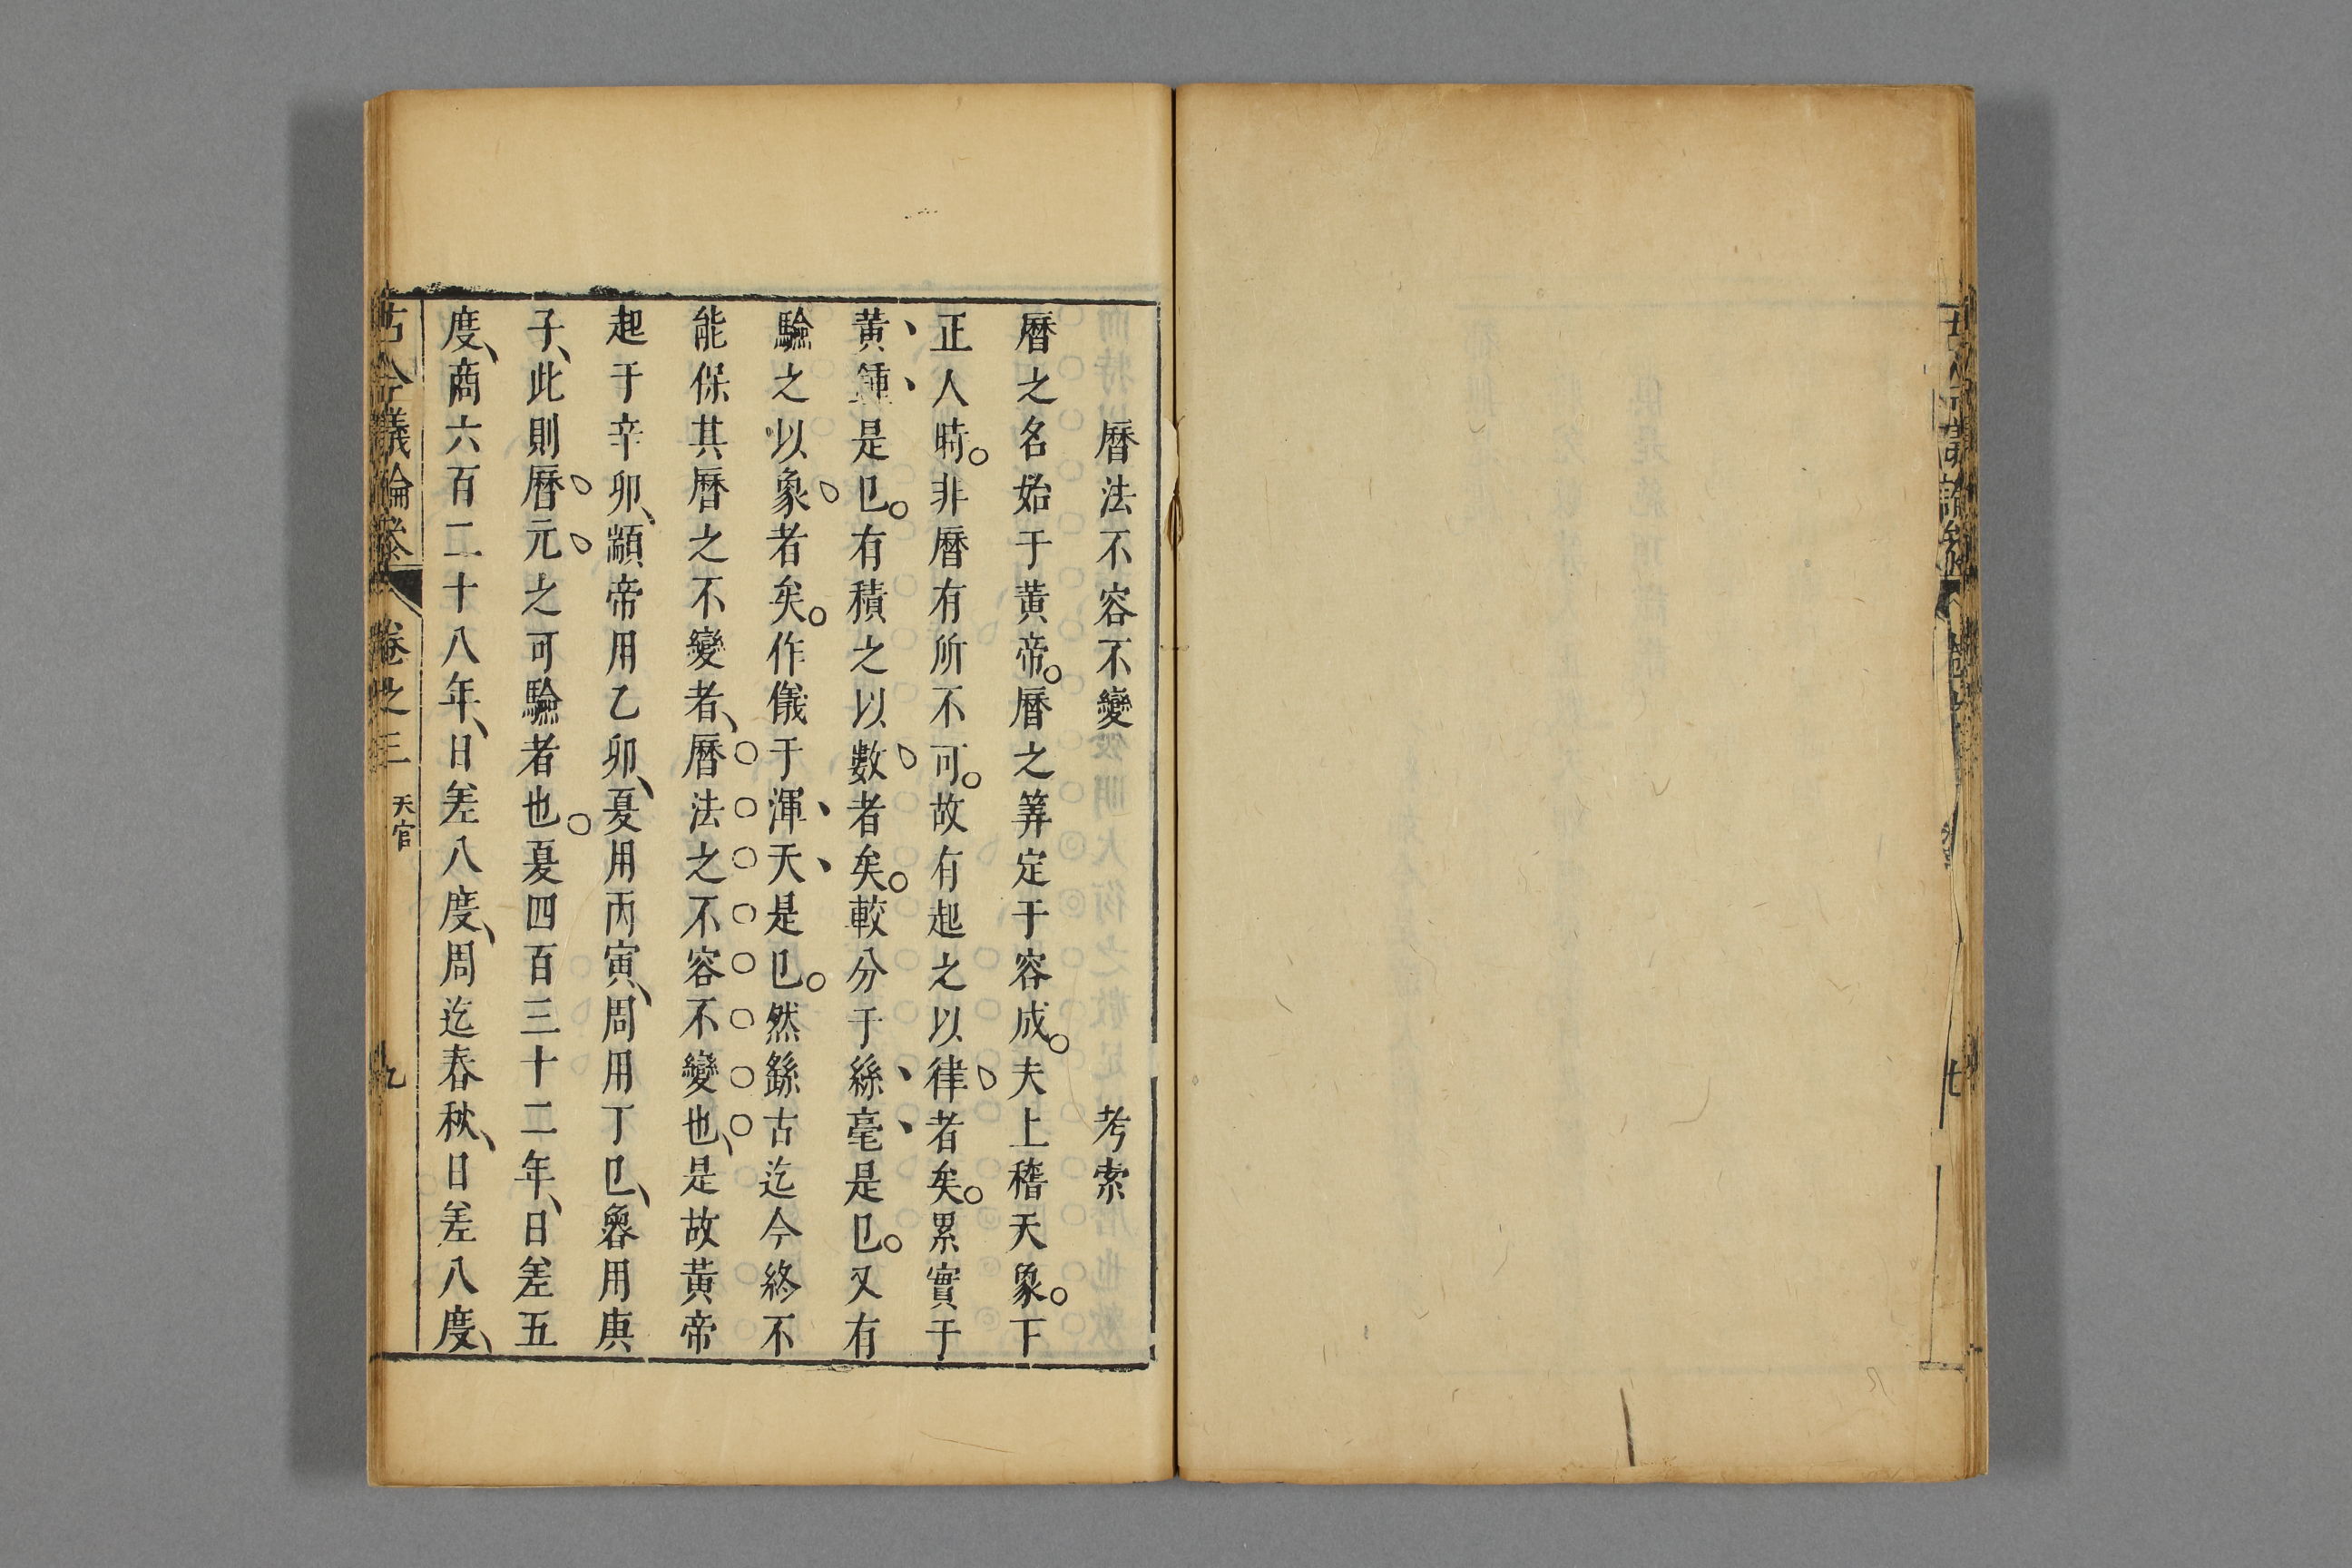 曆法不容不變 考索
曆之名始于黃帝。曆之筭定于容成。夫上稽天象。下
正人時。非曆有所不可。故有起之以律者矣。累實于
黃鍾是已。有積之以數者矣。較分于絲毫是已。又有
驗之以象者矣。作儀于渾天是已。然繇古迄今終不
能保其曆之不變者、曆法之不容不變也、是故黃帝
起于辛卯、顓帝用乙卯、夏用丙寅、周用丁巳、魯用庚
子、此則曆元之可驗者也。夏四百三十二年、日差五
度、商六百二十八年、日差八度、周迄春秋、日差八度、
古今議論參 卷之三 天官 九
七